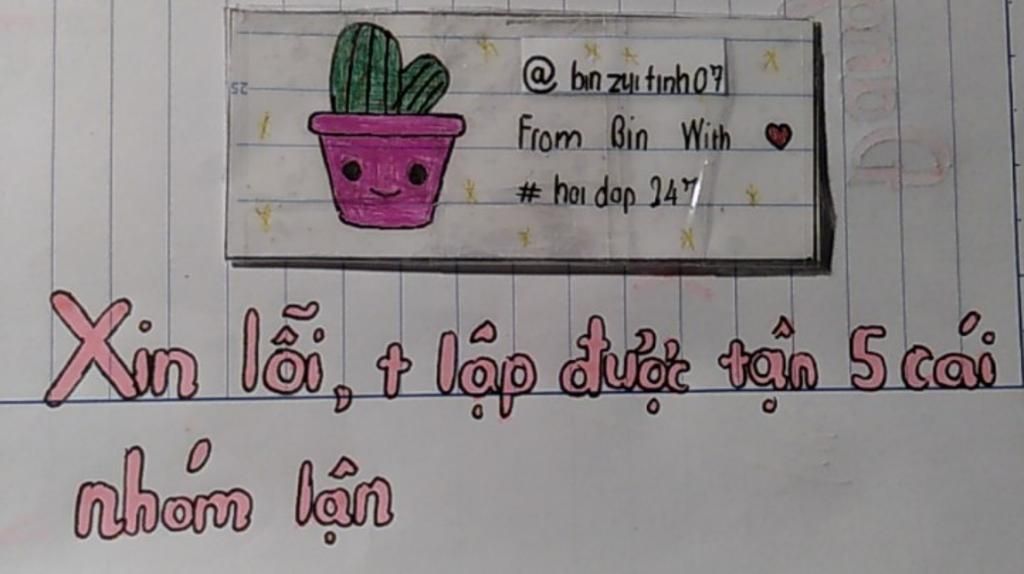 @ binzyitinh07
From Bin With
# hoi dap 247
Xin lỗi, t lập được tận 5 cái
nhóm lận